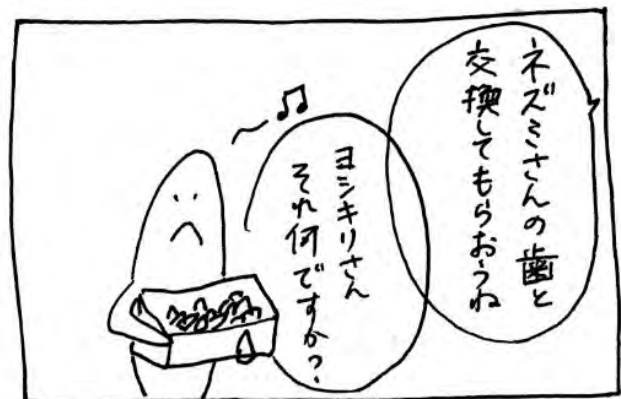 ネズミさんの歯と
交換してもらおうね
ヨシキリさん
それ何ですか?